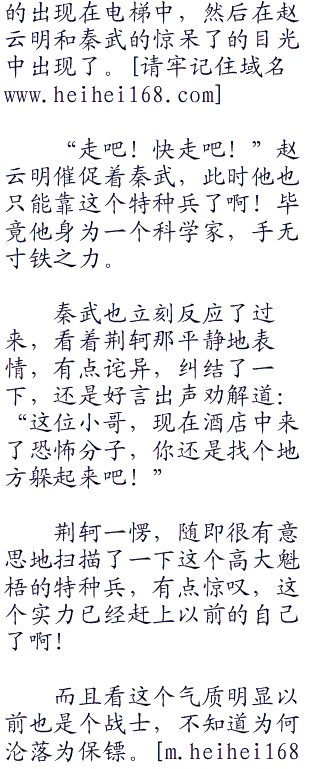 的出现在电梯中，然后在赵
云明和秦武的惊呆了的目光
中出现了。[请牢记住域名
www.heihei168.com]
“走吧！快走吧！”赵
云明催促着秦武，此时他也
只能靠这个特种兵了啊！毕
竟他身为一个科学家，手无
寸铁之力。
秦武也立刻反应了过
来，看着荆轲那平静地表
情，有点诧异，纠结了一
下，还是好言出声劝解道：
“这位小哥，现在酒店中来
了恐怖分子，你还是找个地
方躲起来吧！”
荆轲一愣，随即很有意
思地扫描了一下这个高大魁
梧的特种兵，有点惊叹，这
个实力已经赶上以前的自己
了啊！
而且看这个气质明显以
前也是个战士，不知道为何
沦落为保镖。[m.heihei168